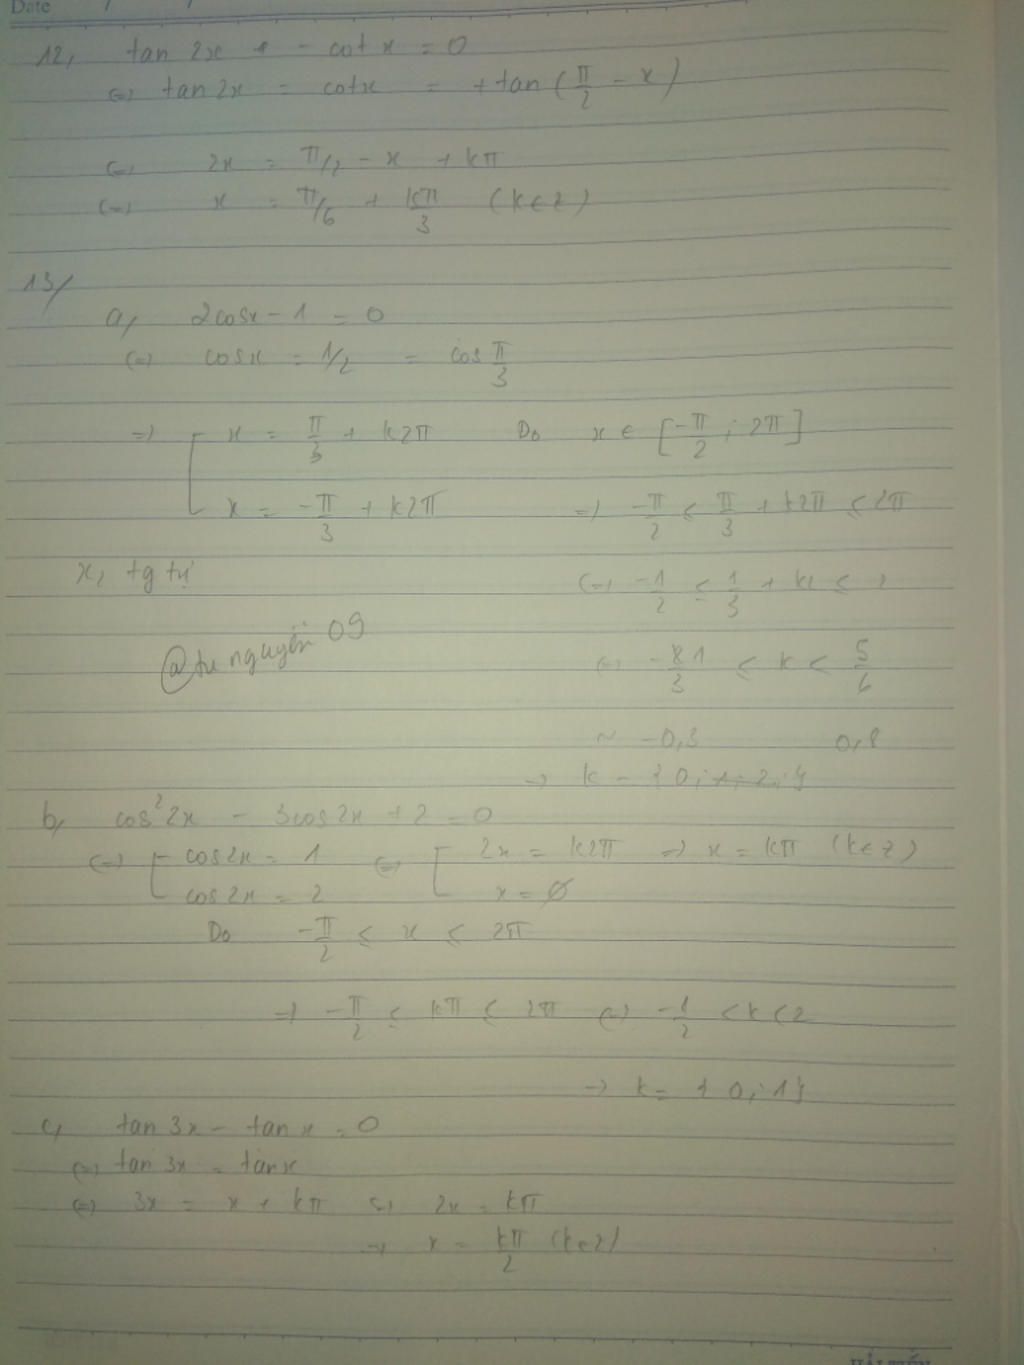 Date / /
12, tan 2x - cot x = 0
(=) tan 2x = cotx = + tan (π/2 - x)
(=) 2x = π/2 - x + kπ
(=) x = π/6 + kπ/3 (k∈Z)
13/
a, 2cosx - 1 = 0
(=) cosx = 1/2 = cos π/3
=) [ x = π/3 + k2π Do x ∈ [-π/2 ; 2π]
x = -π/3 + k2π =) -π/2 ≤ π/3 + k2π ≤ 2π
x, tg tự (=) -1/2 ≤ 1/3 + k2 ≤ 2
@tu nguyễn 09
(=) - 1/3 ≤ k < 5/6
~ -0,3 0,8
→ k = {0; 1; 2;}
b, cos²2x - 3cos2x + 2 = 0
(=) [ cos2x = 1 (=) [ 2x = k2π =) x = kπ (k∈Z)
cos2x = 2 x = ∅
Do -π/2 ≤ x ≤ 2π
=) -π/2 ≤ kπ ≤ 2π (=) -1/2 < k < 2
→ k = {0; 1}
c, tan 3x - tan x = 0
(=) tan 3x = tanx
(=) 3x = x + kπ (=) 2x = kπ
→ x = kπ/2 (k∈Z)
HẢI TIẾN